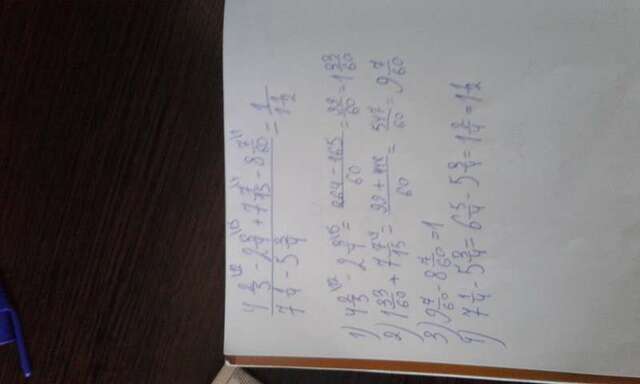 4 2/5 \12 - 2 3/4 \15 + 7 7/15 \4 - 8 7/60 \1 / 7 1/4 - 5 3/4 = 1 / 1 1/2
1) 4 2/5 \12 - 2 3/4 \15 = 264 - 165 / 60 = 99/60 = 1 39/60
2) 1 39/60 + 7 7/15 \4 = 99 + 448 / 60 = 547/60 = 9 7/60
3) 9 7/60 - 8 7/60 = 1
4) 7 1/4 - 5 3/4 = 6 5/4 - 5 3/4 = 1 2/4 = 1 1/2